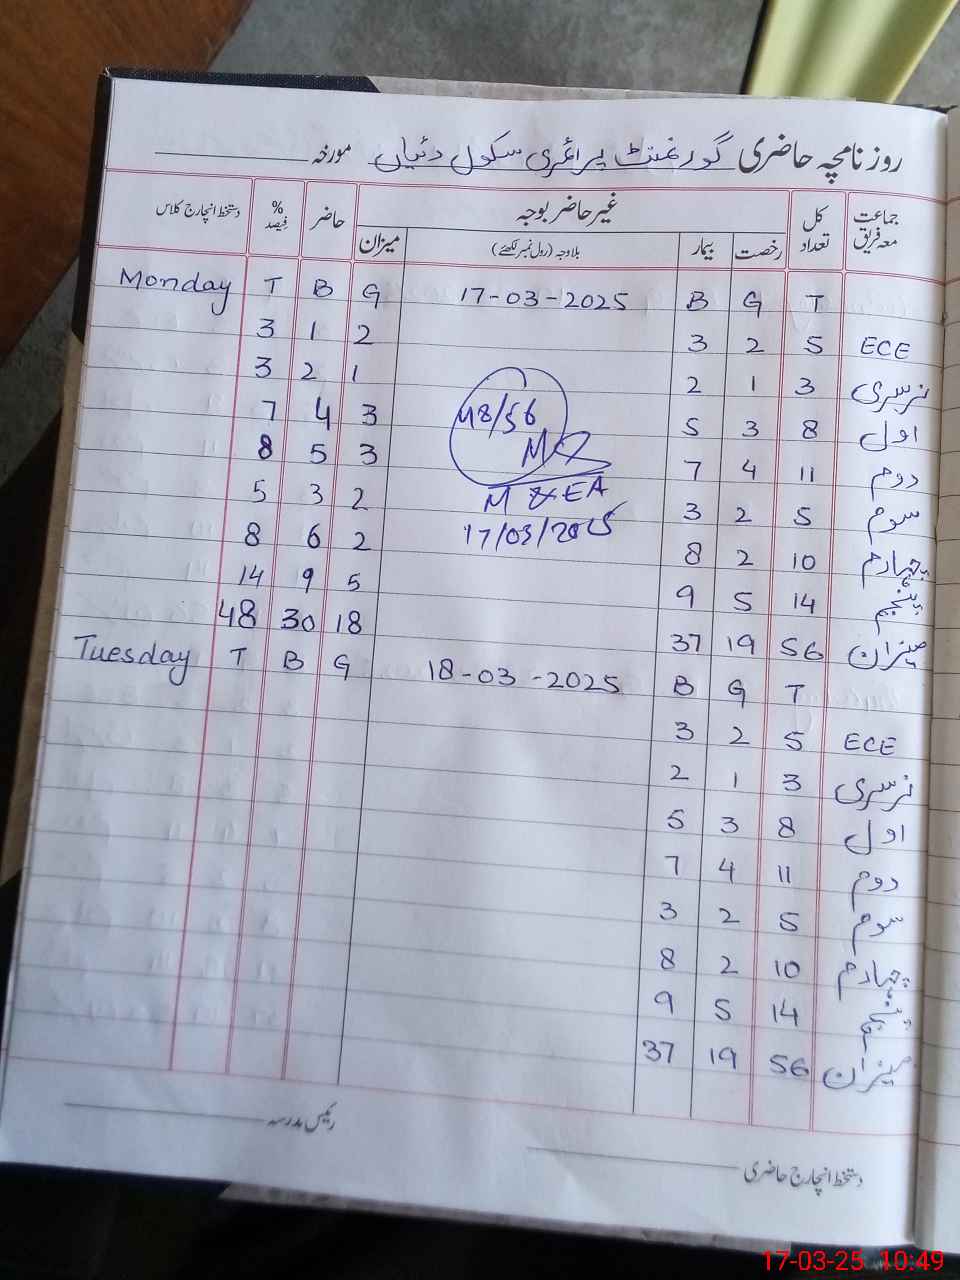 روزنامچہ حاضری گورنمنٹ پرائمری سکول دئیاں مورخہ
جماعت معہ فریق کل تعداد غیر حاضر بوجہ حاضر % فیصد دستخط انچارج کلاس
رخصت بیمار بلاوجہ (رول نمبر لکھئے) میزان
T G B 17-03-2025 G B T Monday
ECE 5 2 3 2 1 3
نرسری 3 1 2 1 2 3
اول 8 3 5 3 4 7
دوم 11 4 7 3 5 8
سوم 5 2 3 2 3 5
چہارم 10 2 8 2 6 8
پنجم 14 5 9 5 9 14
میزان 56 19 37 18 30 48
48/56
M & EA
17/03/2025
T G B 18-03-2025 G B T Tuesday
ECE 5 2 3
نرسری 3 1 2
اول 8 3 5
دوم 11 4 7
سوم 5 2 3
چہارم 10 2 8
پنجم 14 5 9
میزان 56 19 37
رئیس مدرسہ
دستخط انچارج حاضری
17-03-25 10:49